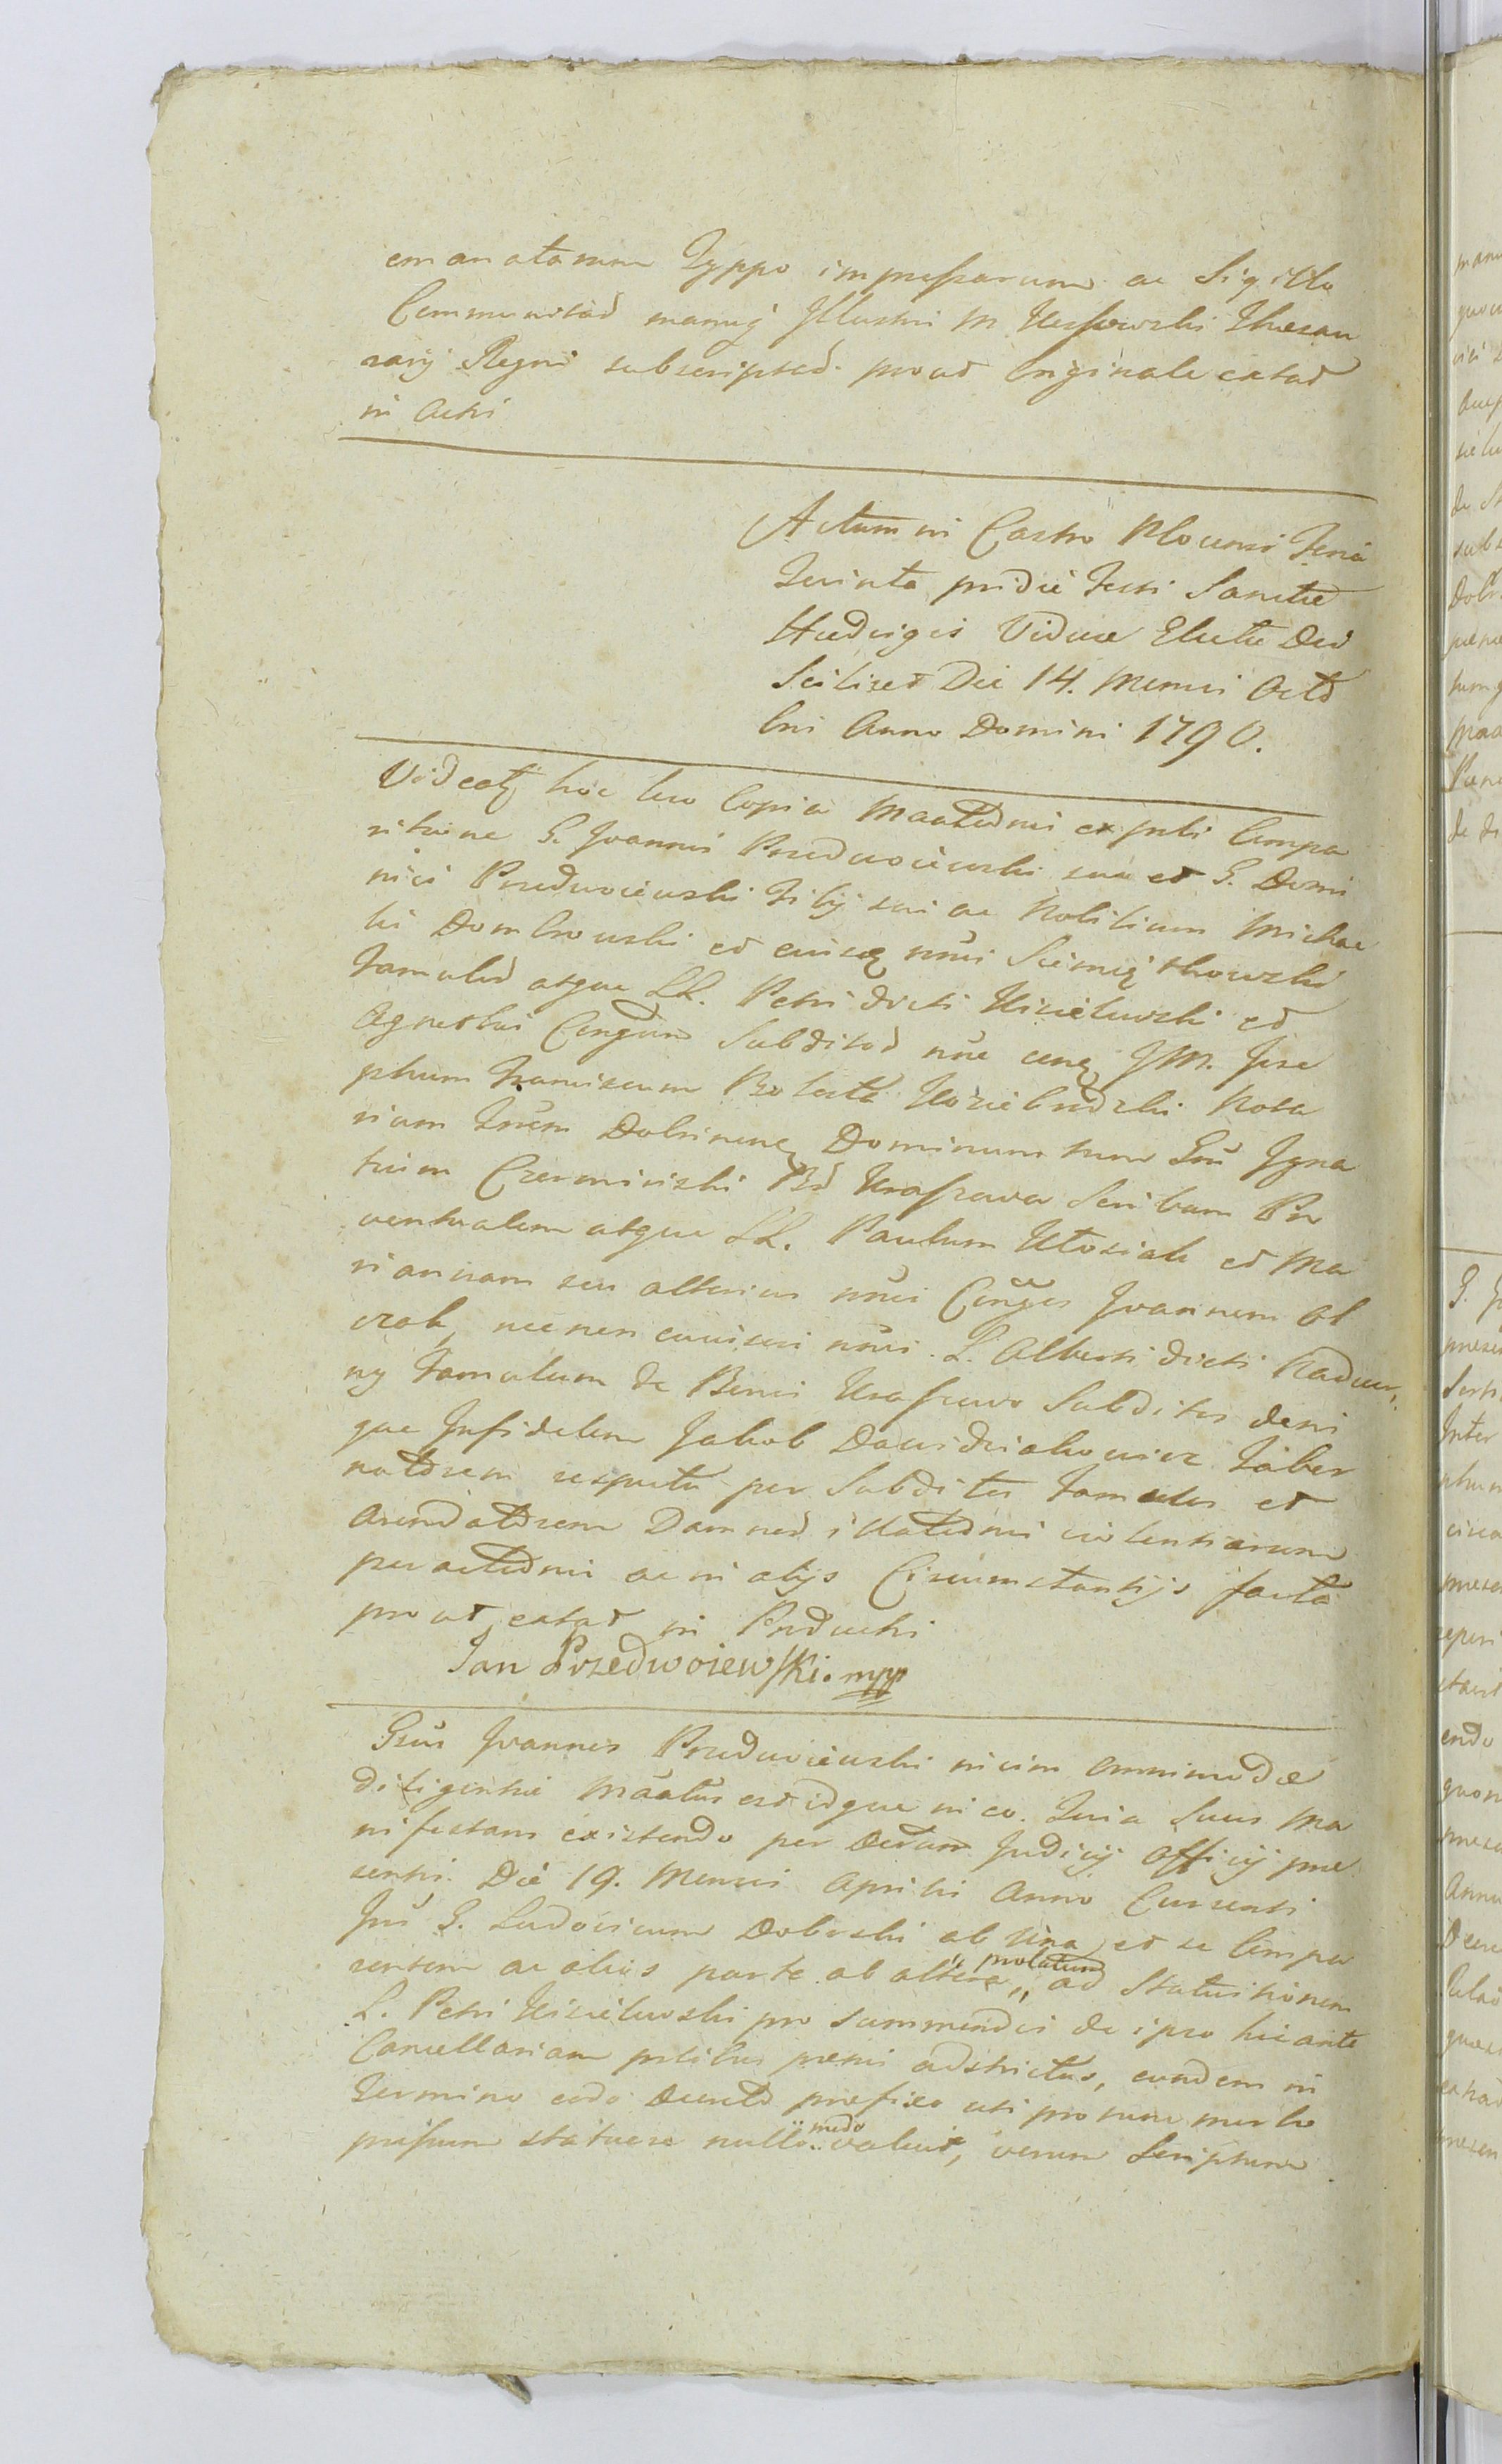 emanatarum Typpo impressarum ac Sigillo
Communitad manuq Illustri M Kossowski Thesau
rarij Regni subscriptad prout Originale extat
in Actis
Actum in Castro Plocensi Feria
Quinta pridie Festi Sanctae
Hedvigis Viduae Electae Dei
Scilicet Die 14. Mensis Octo
bris Anno Domini 1790.
Videatq hoc loco Copia Maatedni ex prti Compa
ritione G. Joannis Przedwoiewski sua et G. Domi
nici Przedwoiewski Filij sui ac Nobilium Michae
lis Dombrowski et cuiusq nnis Siemiątkowski
Famulod atque LL. Petri dicti Kisielewski et
Agnethis Congum Subditod nne cong JM. Jose
phum Franciscum Bolesta Koziebrodzki Nota
rium Trrem Dobrinens Dominum tum Gsu Igna
tium Czerminski Bd Kraszewo Scribam Pro
ventualem atque LL. Paulum Wloziak et Ma
riannam seu alterius nnis Conges Joannem Ol
czak, necnon cuiusvis nnis L. Alberti dicti Radom,
ny Famulum de Bonis Kraszewo Subditos deni
que Infidelem Jakob Dawidziakowicz Taber
natorem respectu per Subditos Famulos et
Arendatorem Damnod illatednis violentiarum
peractednis ac in alijs Circumstantijs facta
prout extat in Producti
Jan Przedwoiewski. mpp
Gsus Joannes Przedwoiewski vicim omnimodae
diligentiae Maatus est idque in eo. Quia Suus Ma
nifestans existendo per Decrum Judicij Officij prae
sentis. Die 19. Mensis Aprilis Anno Currenti
Int G. Ludovicum Doborski ab una et se Compa
rentem ac alios parte ab altera „ prolatum ad Statuitionem
L. Petri Kisielewski pro summendis de ipso hic ante
Cancellariam prtibus poenis adstrictus, eundem in
Termino eodo Decreto praefixo uti pro nunc morbo
pressum statuere nullo modo valuit, verum Scriptum